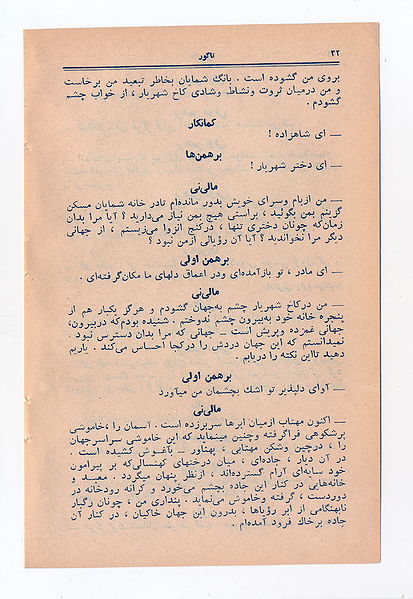 ۳۲
تاگور
بروی من گشوده است . بانگ شمایان بخاطر تبعید من برخاست
و من درمیان ثروت ونشاط وشادی کاخ شهریار ، از خواب چشم
گشودم .
کمانکار
— ای شاهزاده !
برهمن‌ها
— ای دختر شهریار !
مالی‌نی
— من ازبام وسرای خویش بدور مانده‌ام تادر خانه شمایان مسکن
گزینم بمن بگوئید ، براستی هیچ بمن نیاز می‌دارید ؟ آیا مرا بدان
زمان‌که چونان دختری تنها ، درکنج انزوا می‌زیستم ، از جهانی
دیگر مرا نخواندید ؟ آیا آن رؤیائی ازمن نبود ؟
برهمن اولی
— ای مادر ، تو بازآمده‌ای ودر اعماق دلهای ما مکان‌گرفته‌ای .
مالی‌نی
— من درکاخ شهریار چشم به‌جهان گشودم و هرگز یکبار هم از
پنجره خانه خود به‌بیرون چشم ندوختم . شنیده بودم‌که دربیرون،
جهانی غمزده وپریش است — جهانی که مرا بدان دسترس نبود .
نمیدانستم که این جهان دردش را درکجا احساس می‌کند . یاریم
دهید تااین نکته را دریابم .
برهمن اولی
— آوای دلپذیر تو اشك بچشمان من میاورد
مالی‌نی
— اکنون مهتاب ازمیان ابرها سربرزده است . آسمان را ،خاموشی
پرشکوهی فراگرفته وچنین مینماید که این خاموشی سراسرجهان
را ، درچین وشکن مهتابی ، پهناور — بآغوش کشیده است .
در آن دیار ، جاده‌ای ، میان درختهای کهنسالی‌که بر پیرامون
خود سایه‌ای آرام گسترده‌اند ، ازنظر پنهان میگردد . معبد و
خانه‌هایی در کنار این جاده بچشم می‌خورد و کرانه رودخانه در
دوردست ، گرفته وخاموش می‌نماید . پنداری من ، چونان رگبار
نابهنگامی از ابر رؤیاها ، بدرون این جهان خاکیان ، در کنار آن
جاده برخاك فرود آمده‌ام .